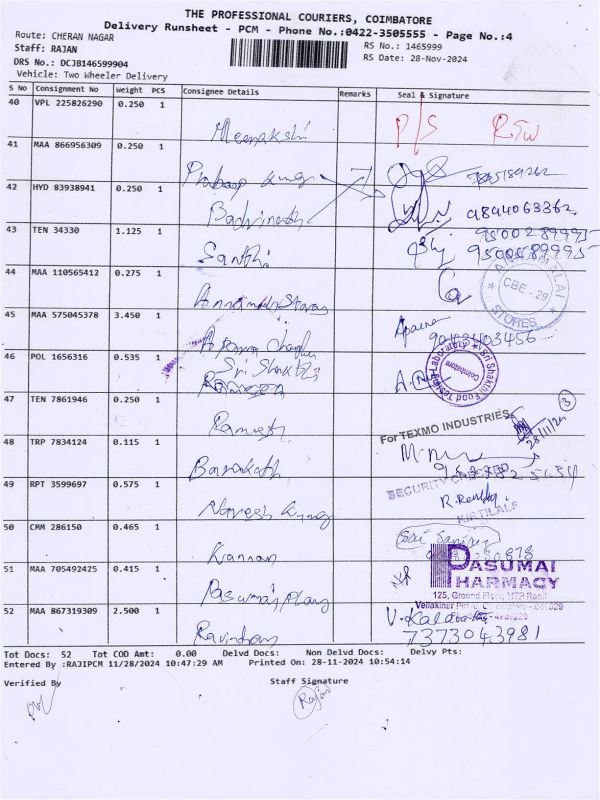 THE PROFESSIONAL COURIERS, COIMBATORE
Delivery Runsheet - PCM - Phone No.:0422-3505555 - Page No.:4
Route: CHERAN NAGAR
Staff: RAJAN
RS No.: 1465999
DRS No.: DCJB146599904
RS Date: 28-Nov-2024
Vehicle: Two Wheeler Delivery
S No Consignment No Weight PCS Consignee Details Remarks Seal & Signature
40 VPL 225826290 0.250 1
Meenakshi
41 MAA 866956309 0.250 1
42 HYD 83938941 0.250 1
Badrinath 9894063362
43 TEN 34330 1.125 1
Santhi 9500589995
44 MAA 110565412 0.275 1
ANNAMALAI STORES CBE - 29
45 MAA 575045378 3.450 1
Aparna
46 POL 1656316 0.535 1
Sri Shakthi
Sri Shakthi Food Testing Laboratory Coimbatore
47 TEN 7861946 0.250 1
Ramesh
For TEXMO INDUSTRIES
28/11/24 3
48 TRP 7834124 0.115 1
Barakath
SECURITY
49 RPT 3599697 0.575 1
Naresh Kumar
KIRTILALS
50 CMM 286150 0.465 1
Kannan
51 MAA 705492425 0.415 1
PASUMAI PHARMACY
125, Ground Floor, MTP Road
52 MAA 867319309 2.500 1
Ravindran
7373043981
Tot Docs: 52 Tot COD Amt: 0.00 Delvd Docs: Non Delvd Docs: Delvy Pts:
Entered By :RAJIPCM 11/28/2024 10:47:29 AM Printed On: 28-11-2024 10:54:14
Verified By Staff Signature
Rajan